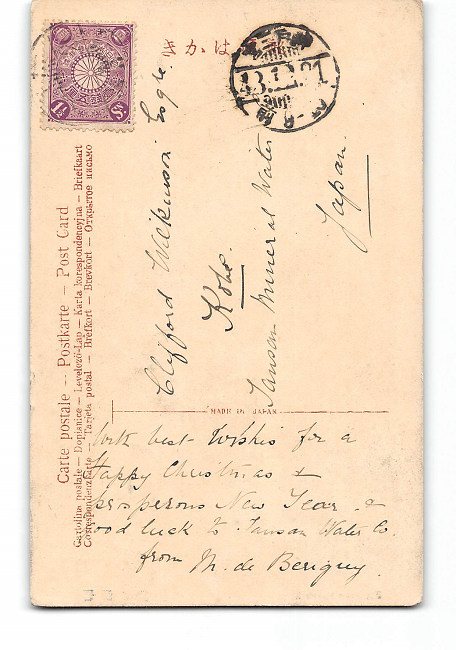 きかは
1½ Sn.
43.12.21
Carte postale — Postkarte — Post Card
Cartolina postale — Dopisnice — Levelező-Lap — Karta korespondencyjna — Briefkaart
Correspondenzkarte — Tarjeta postal — Brefkort — Brevkort — Открытое письмо
Clifford Wilkinson Esqre.
Tansan Mineral Water
Kobe.
Japan.
MADE IN JAPAN
With best Wishes for a
Happy Christmas &
prosperous New Year &
good luck to Tansan Water Co.
from M. de Berigny.